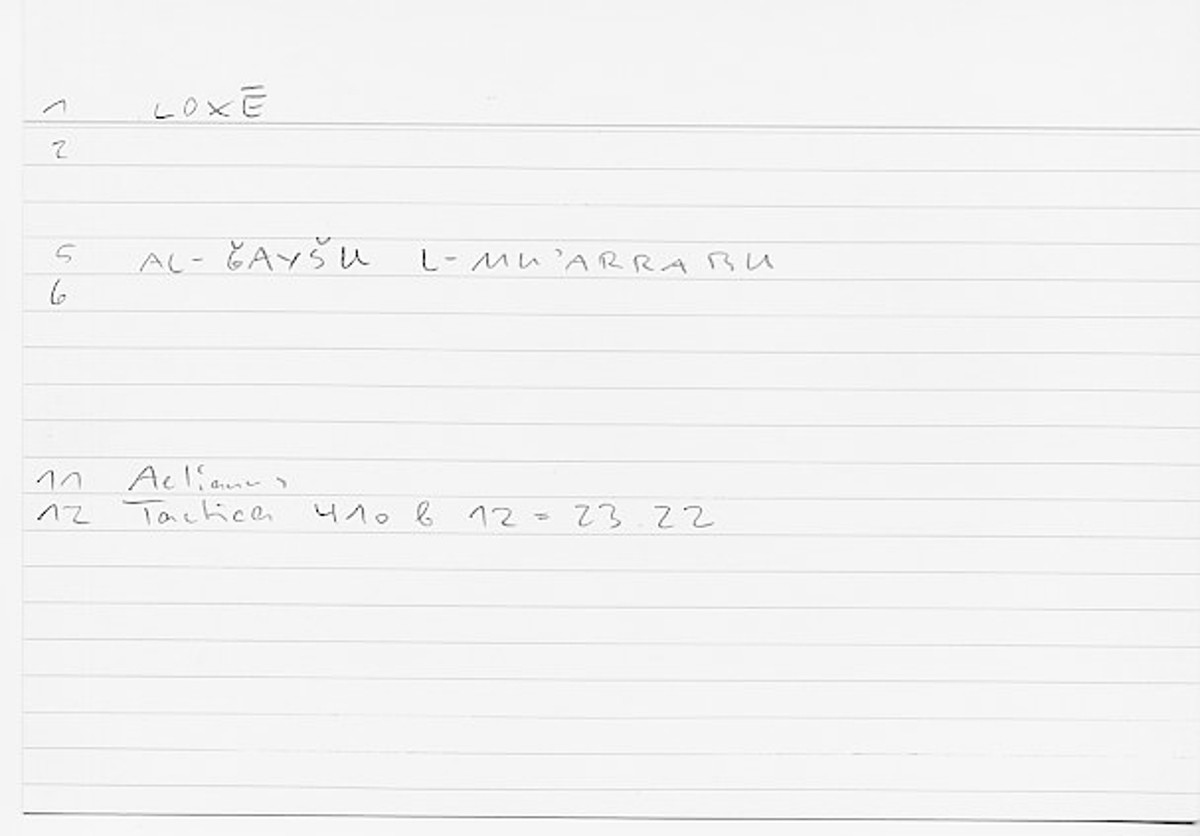 1 LOXĒ
2
5 AL-ǦAYŠU L-MU'ARRABU
6
11 Aelianus
12 Tactica 410 b 12 = 23.22